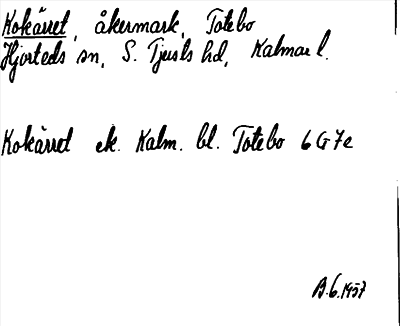 Kokärret, åkermark, Totebo
Hjorteds sn, S. Tjusts hd, Kalmar l.
Kokärret ek. Kalm. bl. Totebo 6 G 7e
B.G. 1957